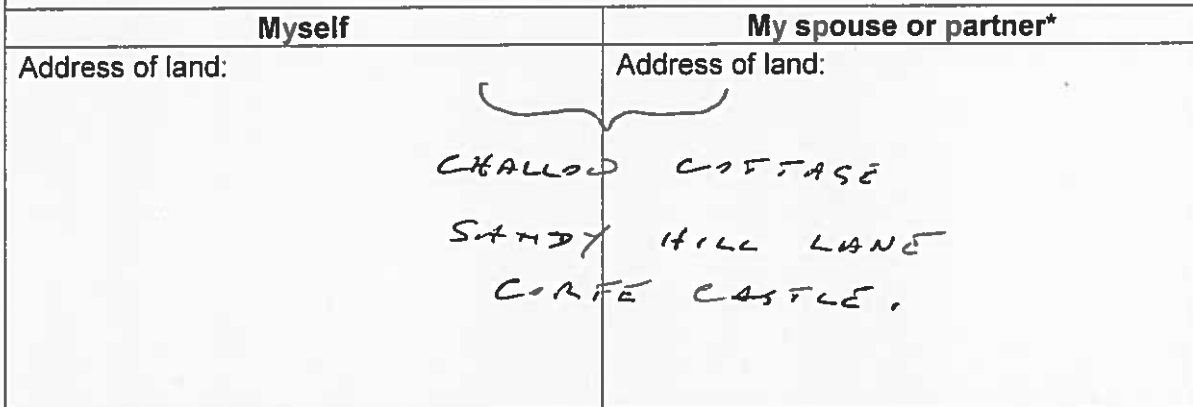 Myself
My spouse or partner*
Address of land:
Address of land:
CHALLOD COTTAGE
SANDY HILL LANE
CORFE CASTLE.